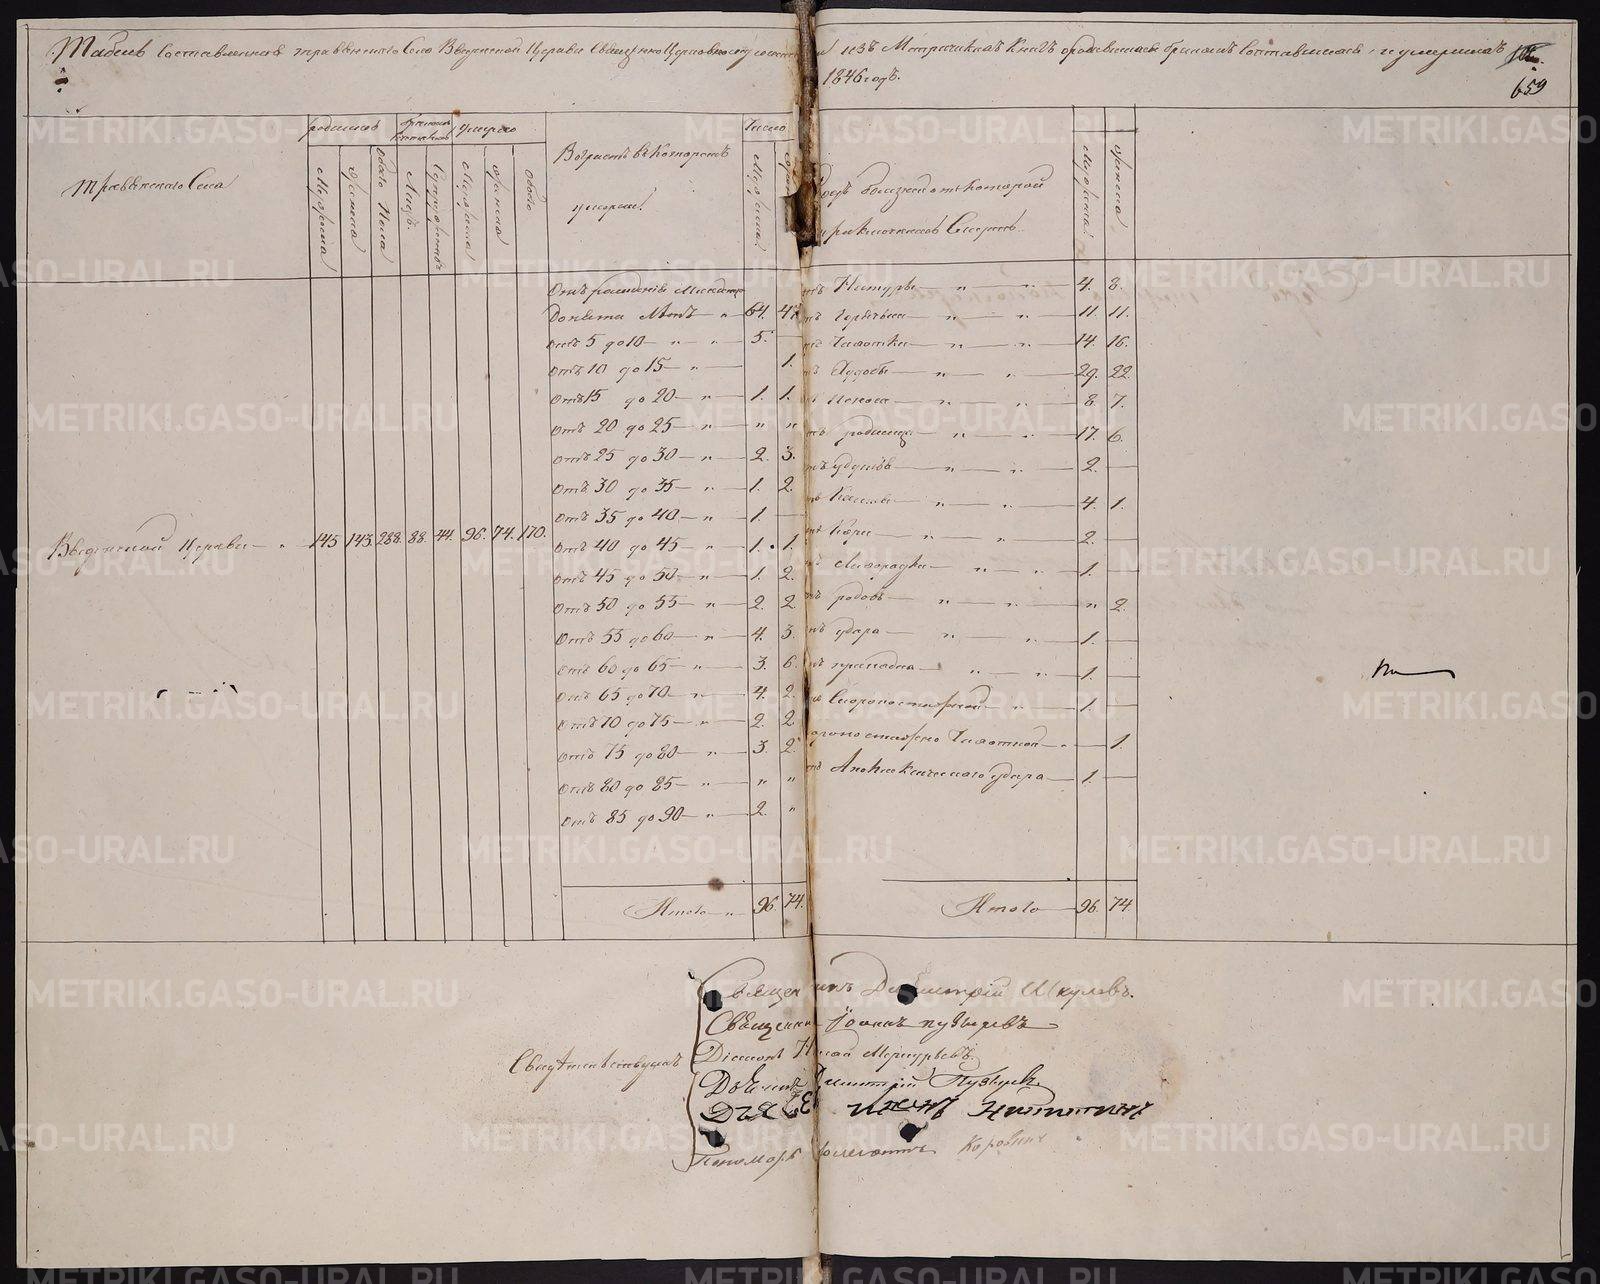 Табель Составленная травянского Села Введенской Церкви Священно Церковнослужит и изъ Метрическихъ Книгъ о родившихся бракомъ Сочетавшихся, и умершихъ
1846 годъ.
659
травянского Села
родилось
бракомъ
умерло
Мужеска
женска
Обоего Пола
Лицъ.
Супружествъ
Мужеска
женска
Обоего
Возрастъ в Которомъ
умерли.
Число
Мужеска.
женска
Родъ болезней отъ которой
приключилась Смерть.
Мужеска.
женска
Введенской Церкви — „ 145 143. 288. 88. 44. 96. 74. 170.
Отъ рожденія Младенцевъ
До пяти Летъ — „ — 64. 47
отъ 5 до 10 — „ „ — 5. —
Отъ 10 до 15 — „ — 1.
Отъ 15 до 20 — „ — 1. 1.
Отъ 20 до 25 — „ — „ „
Отъ 25 до 30 — „ — 2. 3.
Отъ 30 до 35 — „ — 1. 2.
Отъ 35 до 40 — „ — 1. —
Отъ 40 до 45 — „ — 1. 1.
Отъ 45 до 50 — „ — 1. 2.
Отъ 50 до 55 — „ — 2. 2.
Отъ 55 до 60 — „ — 4. 3.
Отъ 60 до 65 — „ — 3. 6.
Отъ 65 до 70 — „ — 4. 2.
Отъ 70 до 75 — „ — 2. 2
Отъ 75 до 80 — „ — 3. 2.
Отъ 80 до 85 — „ — „ „
Отъ 85 до 90 — „ — 2. „
Итого — „ — 96. 74.
Натуры — „ — „ — 4. 8.
Горячьки — „ — „ — 11. 11.
Чахотки — „ — „ — 14. 16.
„ — „ — 29. 22.
„ — „ — 8. 7.
родимца — „ — „ — 17. 6.
„ — „ — 2. —
Кашля — „ — „ — 4. 1.
Кори — „ — „ — 2. —
Лихорадки — „ — „ — 1. —
родовъ — „ — „ — „ 2.
удара — „ — „ — 1. —
припадка — „ — „ — 1. —
Скоропостижной — „ — 1. —
Скоропостижно Чахоткой — „ — 1.
удара — 1. —
Итого — 96. 74.
Свидетельствуютъ
Священникъ Димитрій Шкулевъ.
Священникъ Іоаннъ пузыревъ
Діаконъ Меркурьевъ.
Дьячекъ Димитрій Пузырев.
Дьячекъ Иванъ Никитинъ
Пономарь Коровинъ
METRIKI.GASO-URAL.RU